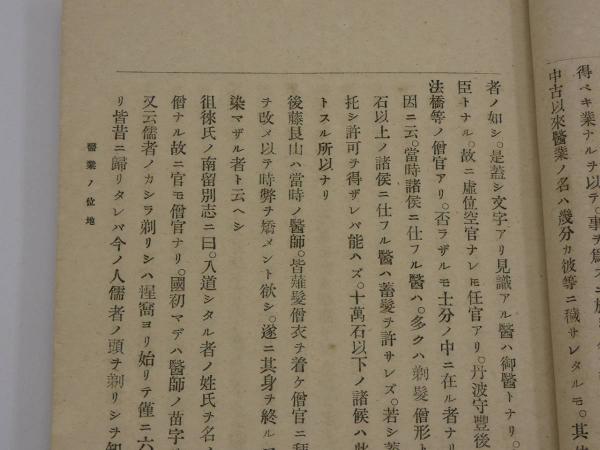 得ベキ業ナルヲ以テ。事ヲ爲スニ
中古以來醫業ノ名ハ幾分カ彼等ニ穢サレタルモ。其
者ノ如シ。是蓋シ文字アリ見識アル醫ハ御醫トナリ。
臣トナル。故ニ虛位空官ナレモ任官アリ。丹波守豐後
法橋等ノ僧官アリ。否ラザルモ士分ノ中ニ在ル者ナリ
因ニ云。當時諸侯ニ仕フル醫ハ。多クハ剃髮僧形ト
石以上ノ諸侯ニ仕フル醫ハ蓄髮ヲ許サレズ。若シ蓄
托シ許可ヲ得ザレバ能ハズ。十萬石以下ノ諸候ハ此
トスル所以ナリ
後藤艮山ハ當時ノ醫師。皆薙髮僧衣ヲ着ケ僧官ニ拜
ヲ改メ以テ時弊ヲ矯メント欲シ。遂ニ其身ヲ終ル
染マザル者ト云ヘシ
徂徠氏ノ南留別志ニ曰。入道シタル者ノ姓氏ヲ名
僧ナル故ニ官モ僧官ナリ。國初マデハ醫師ノ苗字
又云儒者ノカシラ剃リシハ惺窩ヨリ始リテ僅ニ六
リ皆昔ニ歸リタレバ今ノ人儒者ノ頭ヲ剃リシヲ知
醫業ノ位地